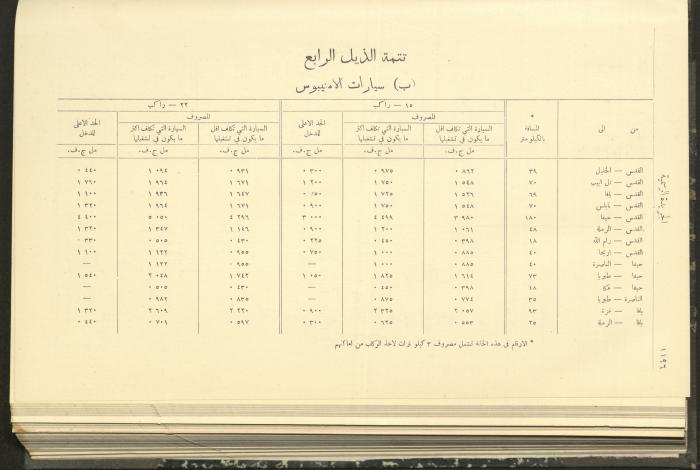 تتمة الذيل الرابع
(ب) سيارات الامنيبوس
من الى * المسافة بالكيلو متر ١٥ — راكب ٢٢ — راكب
المصروف الحد الاعلى للدخل المصروف الحد الاعلى للدخل
السيارة التي تكلف اقل ما يكون في تشغيلها السيارة التي تكلف اكثر ما يكون في تشغيلها السيارة التي تكلف اقل ما يكون في تشغيلها السيارة التي تكلف اكثر ما يكون في تشغيلها
مل ج.ف. مل ج.ف. مل ج.ف. مل ج.ف. مل ج.ف. مل ج.ف.
القدس — الخليل ٣٩ ٨٦٢ ٠ ٩٧٥ ٠ ٣٠٠ ٠ ٩٣١ ٠ ٠٩٤ ١ ٤٤٠ ٠
القدس — تل ابيب ٧٠ ٥٤٨ ١ ٧٥٠ ١ ٢٠٠ ١ ٦٧١ ١ ٩٦٤ ١ ٧٦٠ ١
القدس — يافا ٦٩ ٥٢٦ ١ ٧٢٥ ١ ٧٥٠ ٠ ٦٤٧ ١ ٩٣٦ ١ ١٠٠ ١
القدس — نابلس ٧٠ ٥٤٨ ١ ٧٥٠ ١ ٩٠٠ ٠ ٦٧١ ١ ٩٦٤ ١ ٣٢٠ ١
القدس — حيفا ١٨٠ ٩٨٠ ٣ ٤٩٩ ٤ ٠٠٠ ٣ ٢٩٦ ٤ ٠٥٠ ٥ ٤٠٠ ٤
القدس — الرملة ٤٨ ٠٦١ ١ ٢٠٠ ١ ٩٠٠ ٠ ١٤٦ ١ ٣٤٧ ١ ٣٢٠ ١
القدس — رام الله ١٨ ٣٩٨ ٠ ٤٥٠ ٠ ٢٢٥ ٠ ٤٣٠ ٠ ٥٠٥ ٠ ٣٣٠ ٠
القدس — اريحا ٤٠ ٨٨٥ ٠ ٠٠٠ ١ ٧٥٠ ٠ ٩٥٥ ٠ ١٢٢ ١ ١٠٠ ١
حيفا — الناصرة ٤٠ ٨٨٥ ٠ ٠٠٠ ١ — ٩٥٥ ٠ ١٢٢ ١ —
حيفا — طبريا ٧٣ ٦١٤ ١ ٨٢٥ ١ ٠٥٠ ١ ٧٤٢ ١ ٠٤٨ ٢ ٥٤٠ ١
حيفا — عكا ١٨ ٣٩٨ ٠ ٤٥٠ ٠ — ٤٣٠ ٠ ٥٠٥ ٠ —
الناصرة — طبريا ٣٥ ٧٧٤ ٠ ٨٧٥ ٠ — ٨٣٥ ٠ ٩٨٢ ٠ —
يافا — غزة ٩٣ ٠٥٧ ٢ ٣٢٥ ٢ ٩٠٠ ٠ ٢٢٠ ٢ ٦٠٩ ٢ ٣٢٠ ١
يافا — الرملة ٢٥ ٥٥٣ ٠ ٦٢٥ ٠ ٣٠٠ ٠ ٥٩٧ ٠ ٧٠١ ٠ ٤٤٠ ٠
* الارقام في هذه الخانة تشمل مصروف ٣ كيلو مترات لاخذ الركاب من اماكنهم
الجريدة الرسمية
١١٩٦